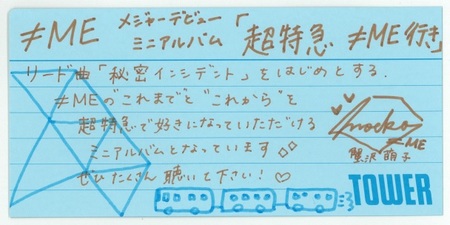 ≠ME メジャーデビュー
ミニアルバム「超特急 ≠ME行き」
リード曲「秘密インシデント」をはじめとする、
≠MEの"これまで"と"これから"を
超特急で好きになっていただける
ミニアルバムとなっています◇◇
ぜひたくさん聴いて下さい!♡
moeko
≠ME
蟹沢萌子
TOWER